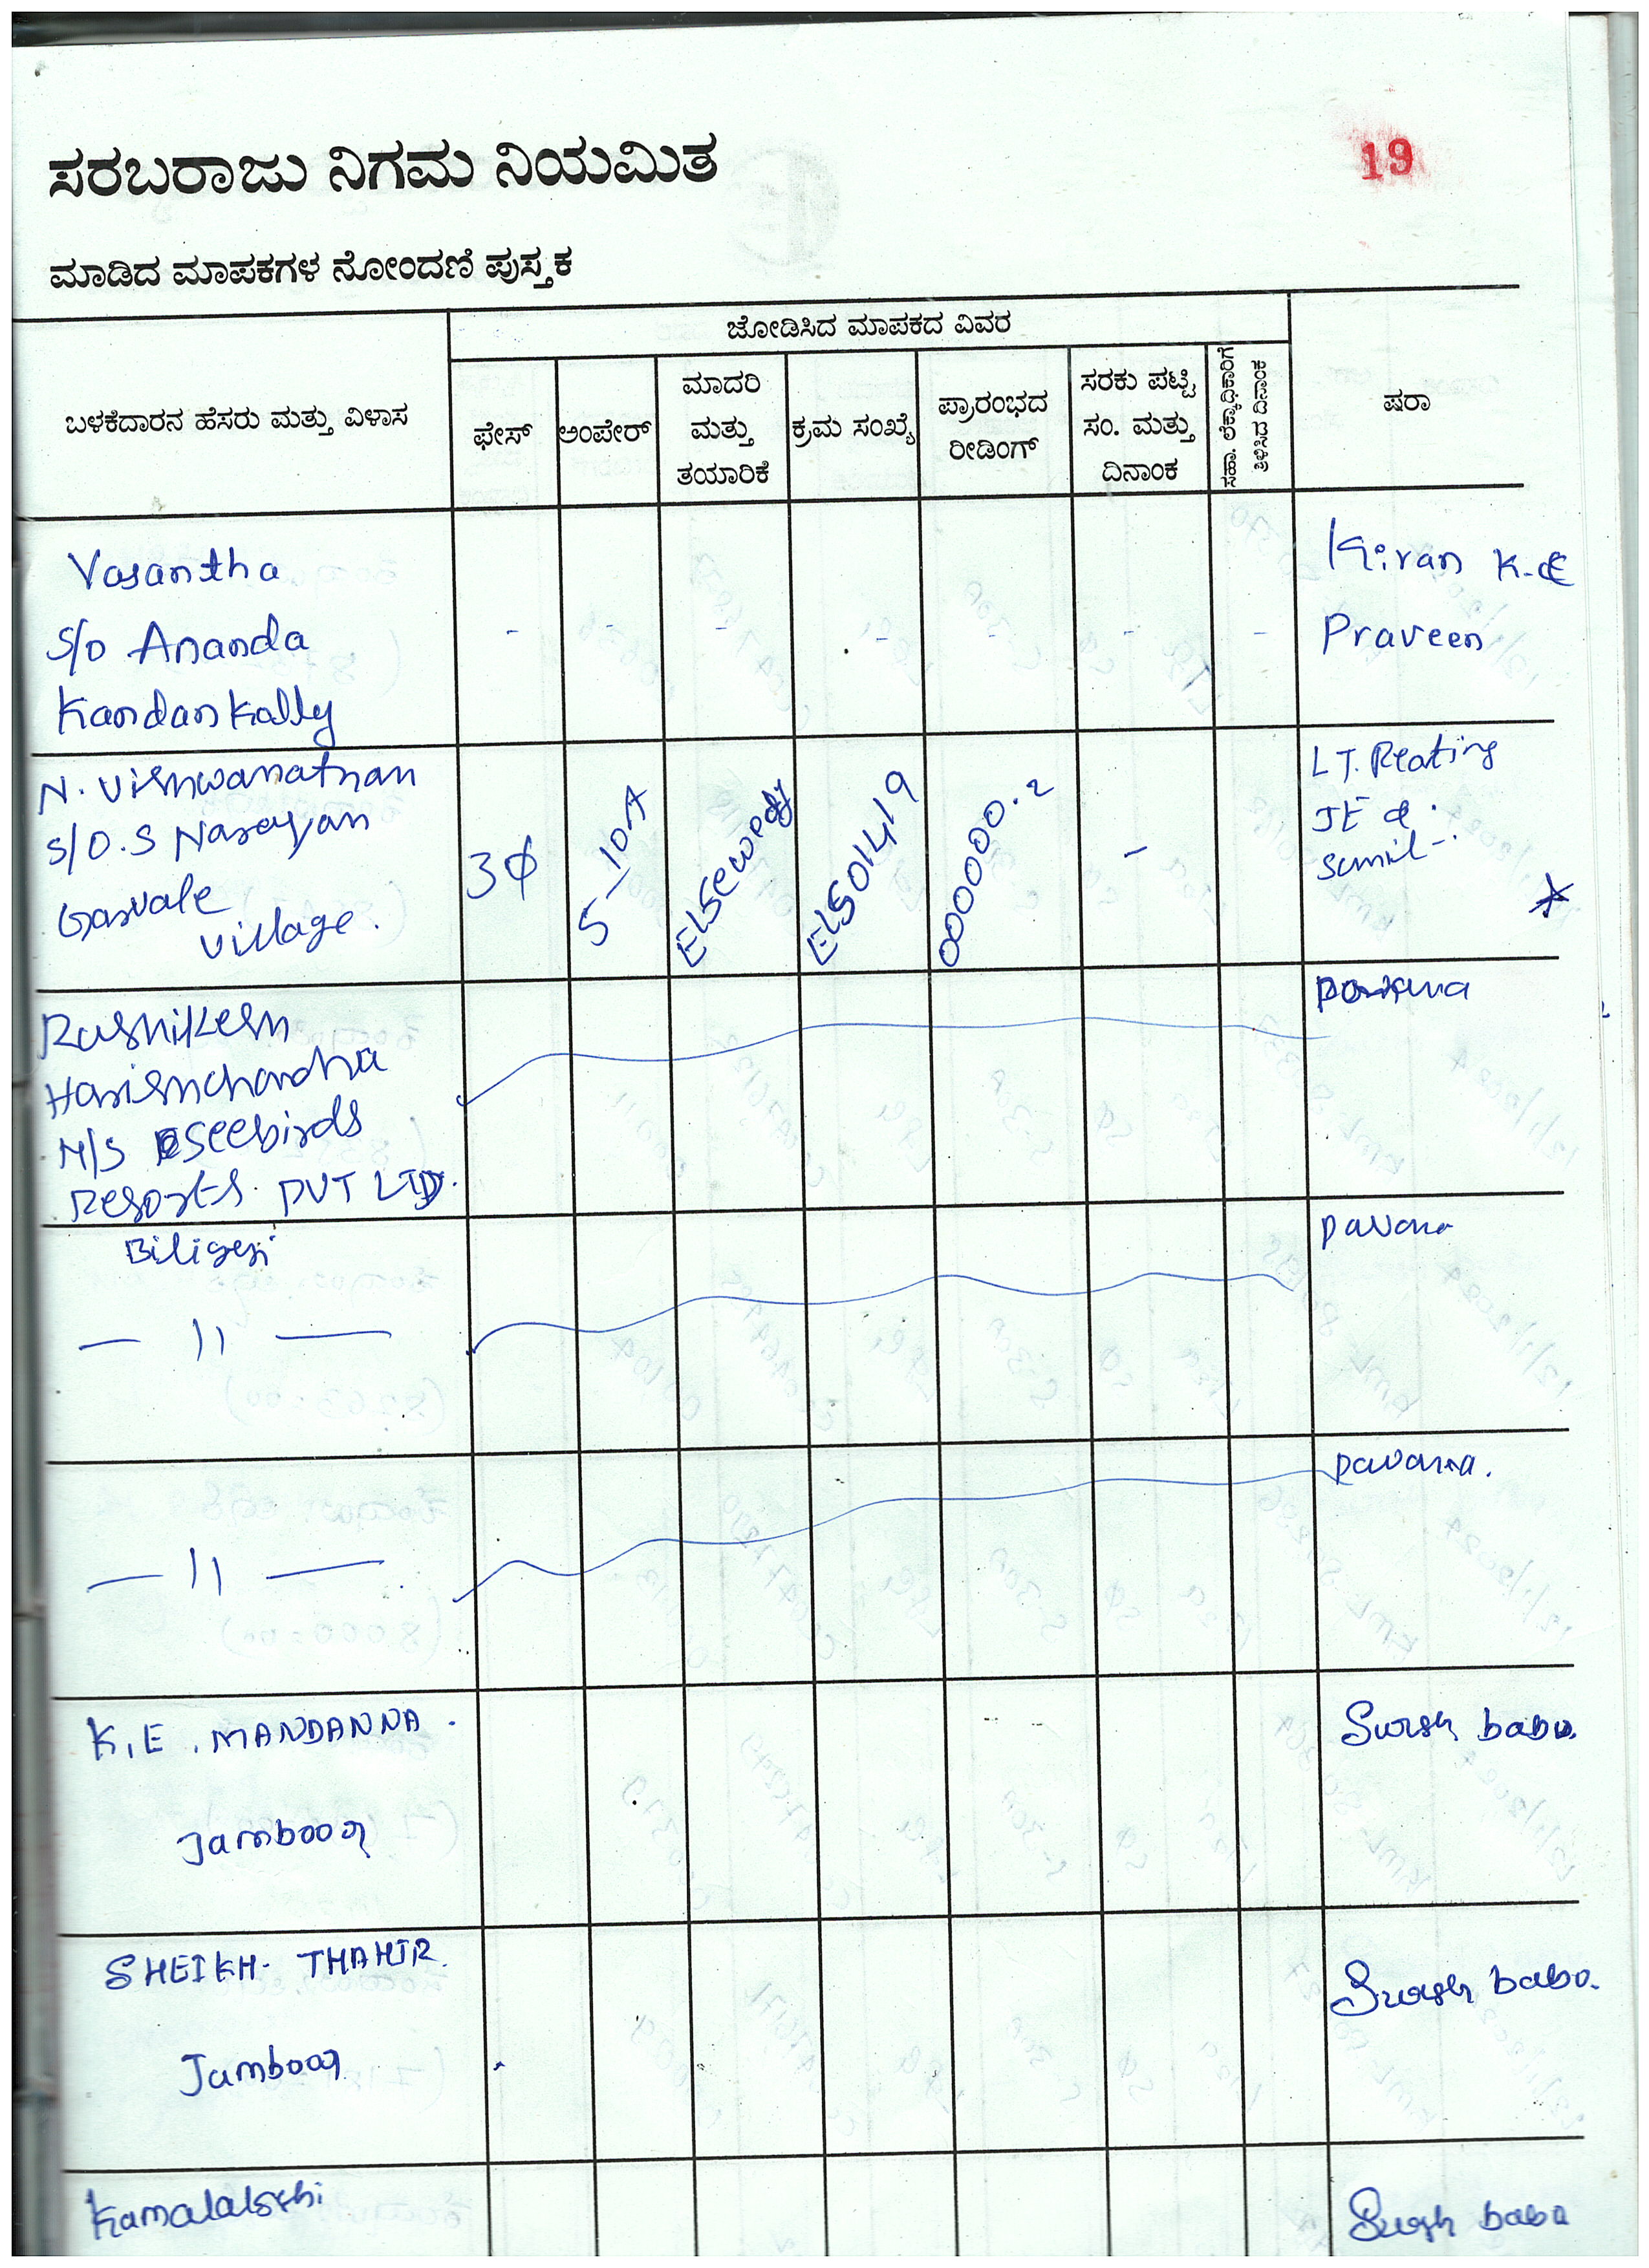 ಸರಬರಾಜು ನಿಗಮ ನಿಯಮಿತ
19
ಮಾಡಿದ ಮಾಪಕಗಳ ನೋಂದಣಿ ಪುಸ್ತಕ
ಬಳಕೆದಾರನ ಹೆಸರು ಮತ್ತು ವಿಳಾಸ
ಜೋಡಿಸಿದ ಮಾಪಕದ ವಿವರ
ಫೇಸ್
ಅಂಪೇರ್
ಮಾದರಿ
ಮತ್ತು
ತಯಾರಿಕೆ
ಕ್ರಮ ಸಂಖ್ಯೆ
ಪ್ರಾರಂಭದ
ರೀಡಿಂಗ್
ಸರಕು ಪಟ್ಟಿ
ಸಂ. ಮತ್ತು
ದಿನಾಂಕ
ಸಹಾ. ಲೆಕ್ಕಾಧಿಕಾರಿಗೆ
ದಿನಾಂಕ
ಷರಾ
Vasantha
S/o Ananda
Kandankally
- - - - - - -
Kiran K.E
Praveen
N. Vishwanathan
S/O.S Narayan
Garvale
village.
3Φ
5-10A
Elsewedy
ELS01419
000000.2
-
L T. Reating
JE &
Sunil
Rushikesh
Harishchandra
M/S seebirds
Resorts. PVT LTD.
pavana
Biligeri
— 11 —
pavana
— 11 —
pavana.
K.E. MANDANNA.
Jamboor
Suresh babu.
SHEIKH- THAHIR.
Jamboor
Suresh babu.
Kamalakshi
Suresh babu